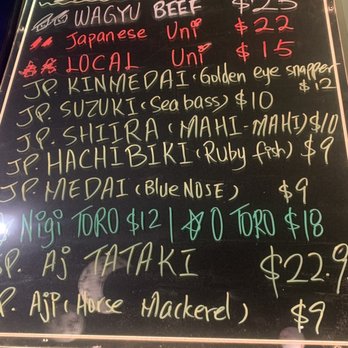 WAGYU BEEF $25
Japanese Uni $22
LOCAL Uni $15
JP. KINMEDAI (Golden eye snapper $12
JP. SUZUKI (Sea bass) $10
JP. SHIIRA (MAHI-MAHI) $10
JP. HACHIBIKI (Ruby fish) $9
JP. MEDAI (BLUE NOSE) $9
Nigi TORO $12 | O TORO $18
SP. Aj TATAKI $22.9
P. Aji (Horse Mackerel) $9